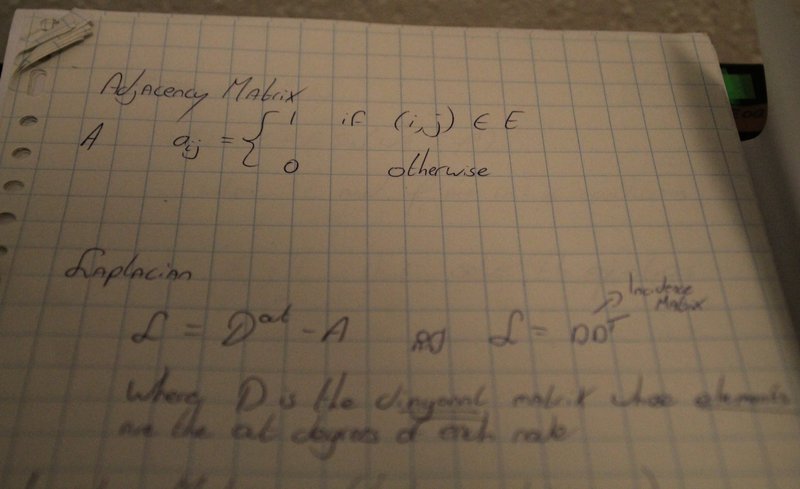 Adjacency Matrix
A   a_ij = { 1 if (i,j) ∈ E
0 otherwise
Laplacian
Incidence
Matrix
ℒ = D^out - A   ℒ = DD^T
where D is the diagonal matrix whose elements
are the out degrees of each node